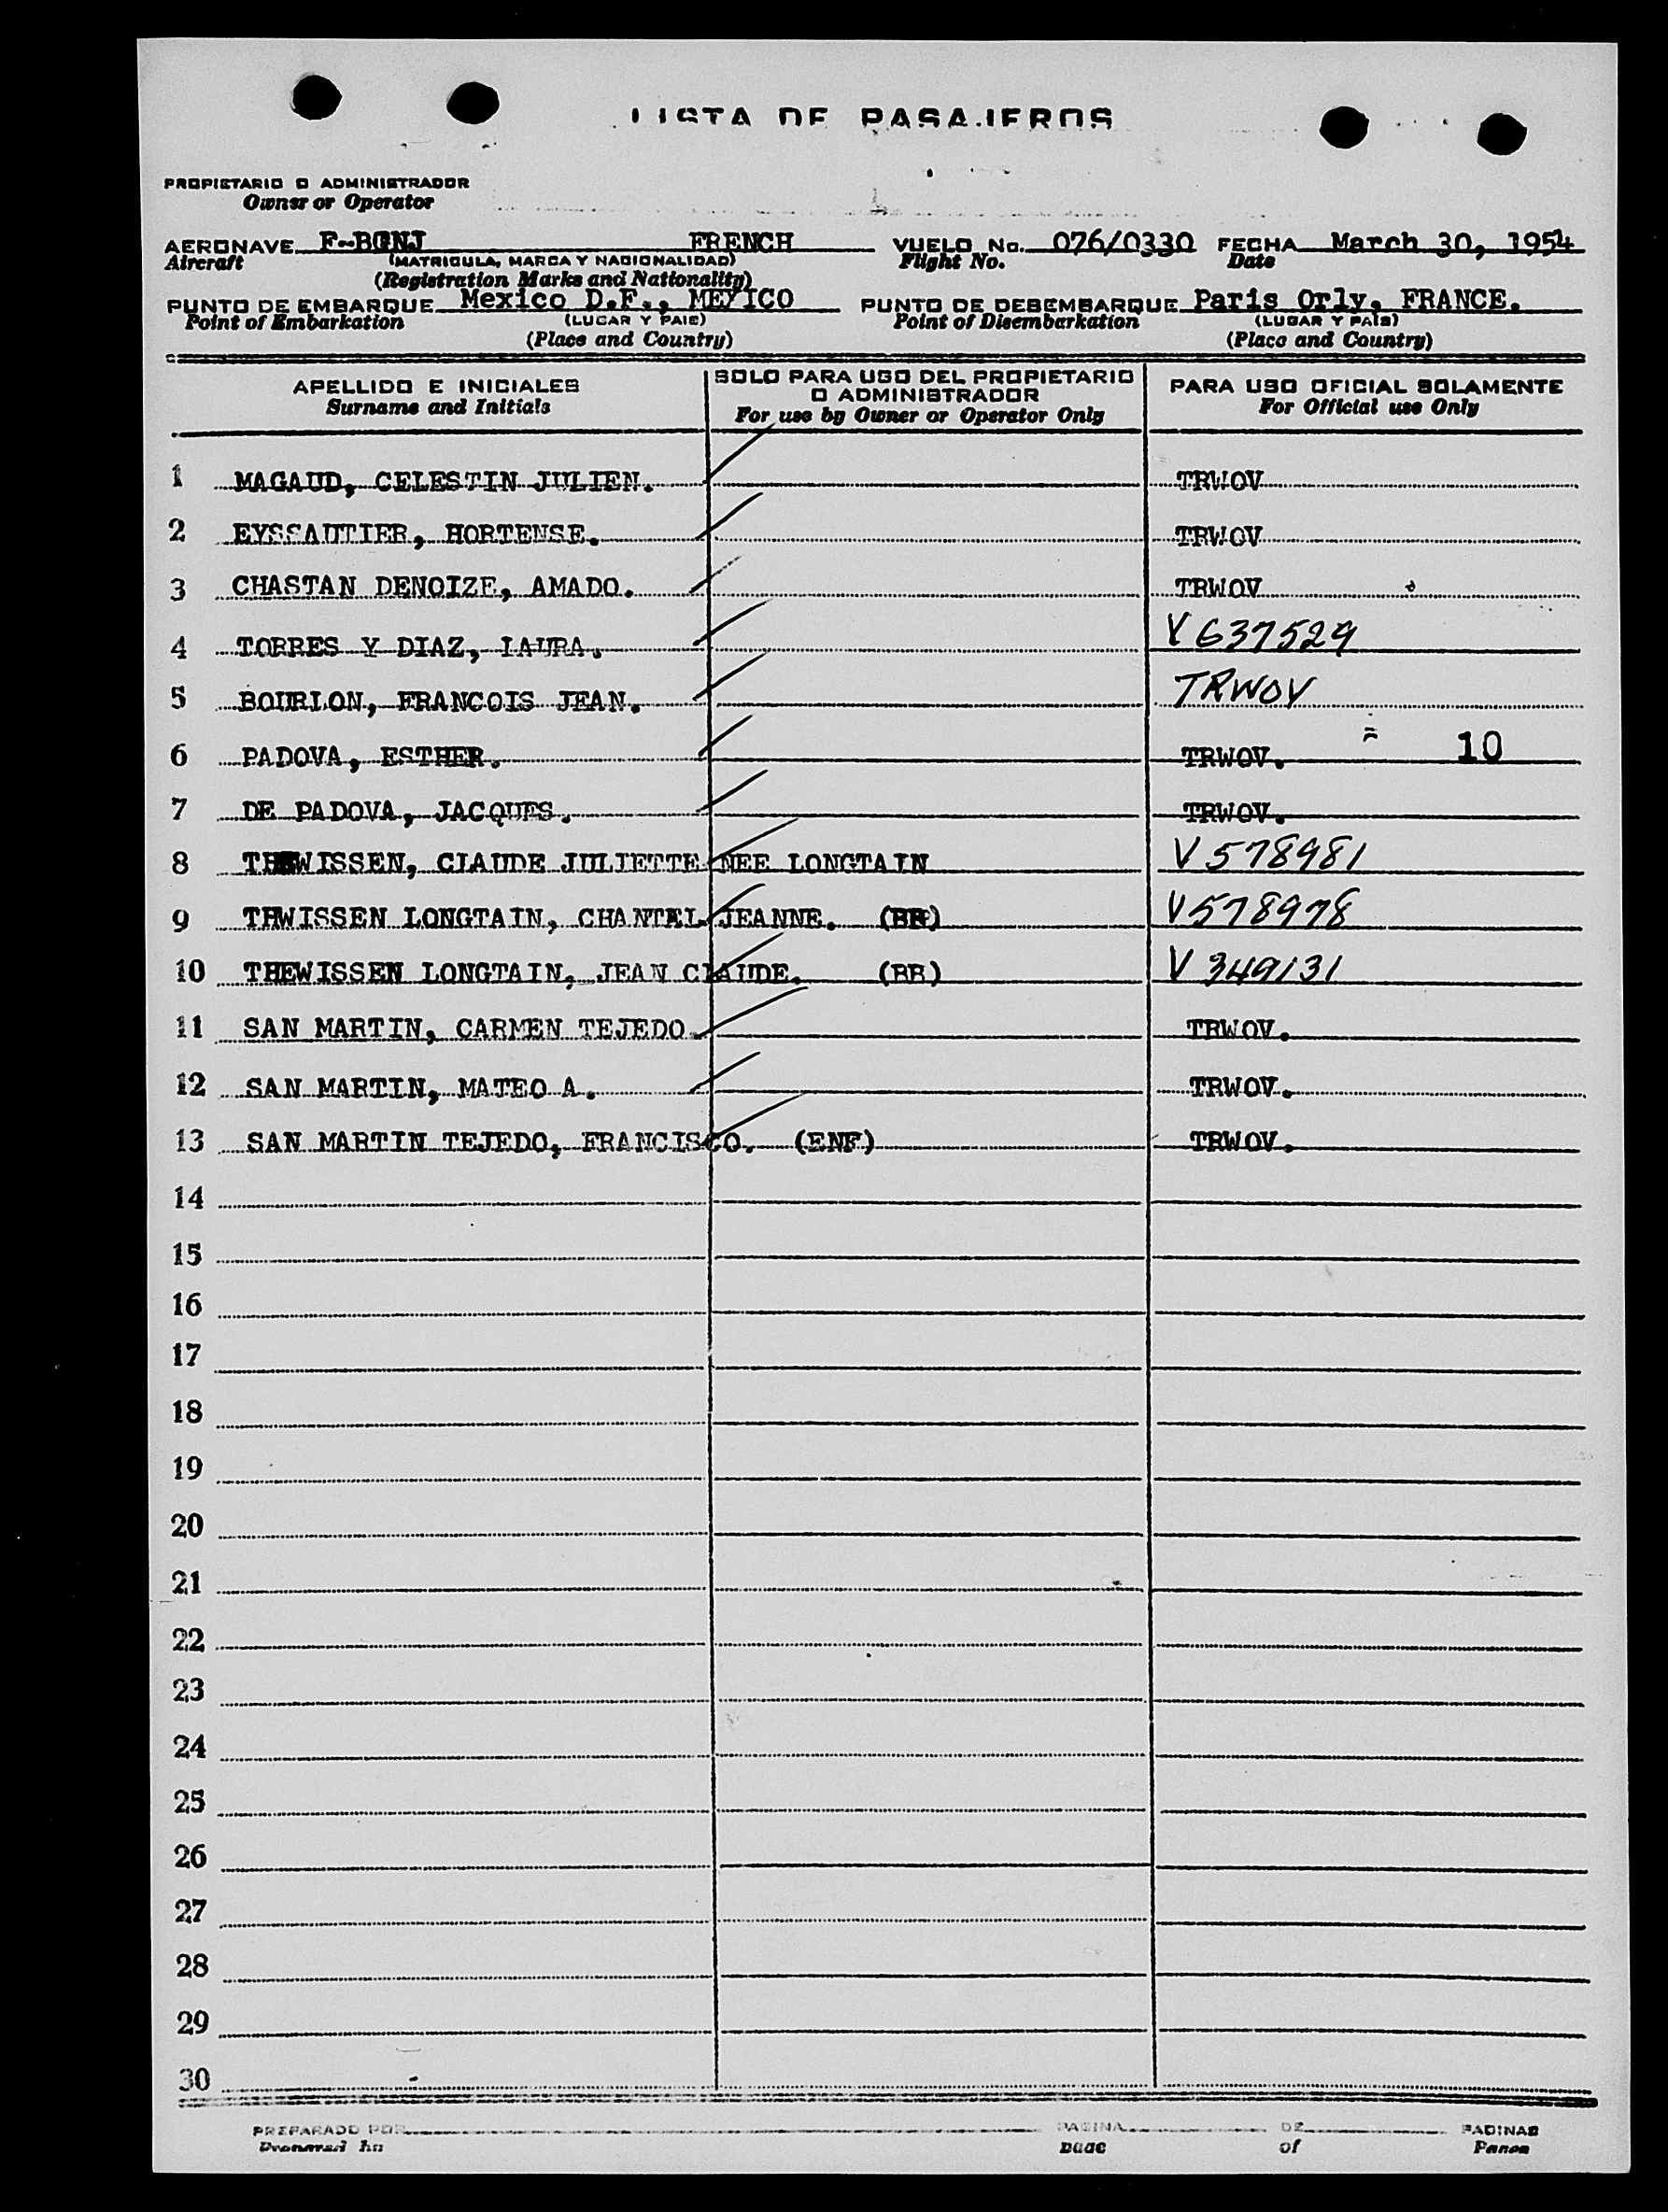 LISTA DE PASAJEROS
PROPIETARIO O ADMINISTRADOR
Owner or Operator
AERONAVE F-BGNJ FRENCH VUELO No. 076/0330 FECHA March 30, 1954
Aircraft (MATRICULA, MARCA Y NACIONALIDAD) Flight No. Date
(Registration Marks and Nationality)
PUNTO DE EMBARQUE Mexico D.F., MEXICO PUNTO DE DESEMBARQUE Paris Orly, FRANCE.
Point of Embarkation (LUGAR Y PAIS) Point of Disembarkation (LUGAR Y PAIS)
(Place and Country) (Place and Country)
APELLIDO E INICIALES SOLO PARA USO DEL PROPIETARIO O ADMINISTRADOR PARA USO OFICIAL SOLAMENTE
Surname and Initials For use by Owner or Operator Only For Official use Only
1 MAGAUD, CELESTIN JULIEN. TRWOV
2 EYSSAUTIER, HORTENSE. TRWOV
3 CHASTAN DENOIZE, AMADO. TRWOV
4 TORRES Y DIAZ, LAURA. V 637529
5 BOURLON, FRANCOIS JEAN. TRWOV
6 PADOVA, ESTHER. TRWOV. 10
7 DE PADOVA, JACQUES. TRWOV.
8 THEWISSEN, CLAUDE JULIETTE NEE LONGTAIN V 578981
9 THWISSEN LONGTAIN, CHANTEL JEANNE. (BB) V578978
10 THEWISSEN LONGTAIN, JEAN CLAUDE. (BB) V 349131
11 SAN MARTIN, CARMEN TEJEDO. TRWOV.
12 SAN MARTIN, MATEO A. TRWOV.
13 SAN MARTIN TEJEDO, FRANCISCO. (ENF) TRWOV.
14
15
16
17
18
19
20
21
22
23
24
25
26
27
28
29
30
PREPARADO POR PAGINA DE PAGINAS
Prepared by page of Pages